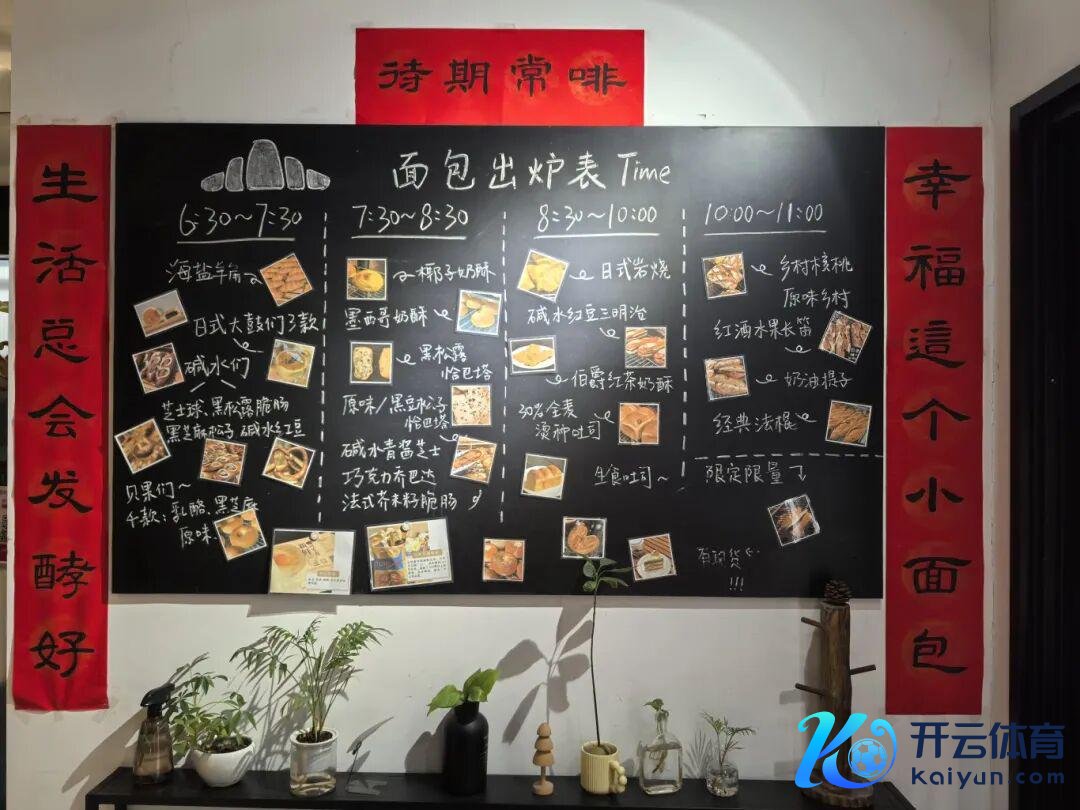 待期常啡
生活总会发酵好
幸福這个小面包
面包出炉表 Time
6:30~7:30
海盐羊角
日式大鼓们3款
碱水们
芝士球、黑松露脆肠
黑芝麻松子 碱水红豆
贝果们~
千款:乳酪、黑芝麻
原味、
7:30~8:30
椰子奶酥
墨西哥奶酥
黑松露
恰巴塔
原味/黑豆松子
恰巴塔
碱水青酱芝士
巧克力乔巴达
法式芥末籽脆肠
8:30~10:00
日式岩烧
碱水红豆三明治
伯爵红茶奶酥
30%全麦
烫种吐司
生食吐司~
10:00~11:00
乡村核桃
原味乡村
红酒水果长笛
奶油提子
经典法棍
限定限量
有现货
!!!
开云体育
kaiyun.com